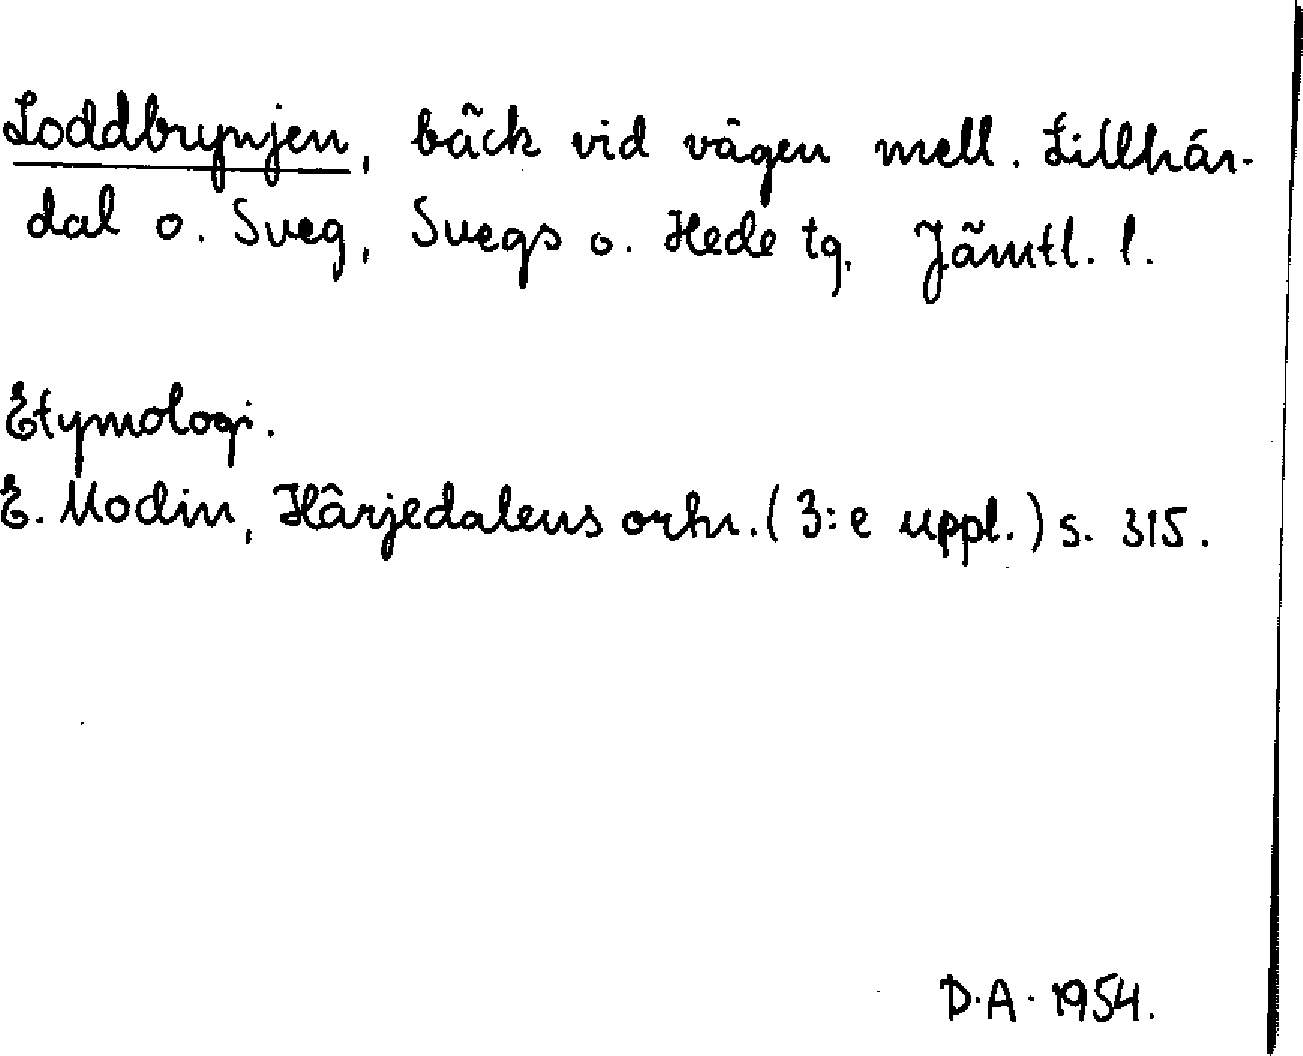 Loddbrynjen, bäck vid vägen mell. Lillhär-
dal o. Sveg, Svegs o. Hede tg, Jämtl. l.
Etymologi.
E. Modin, Härjedalens ortn. (3:e uppl.) s. 315.
D.A. 1954.